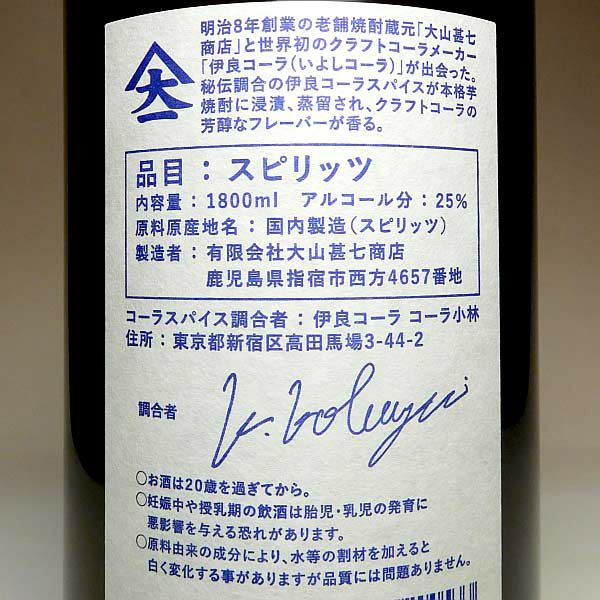 大
明治8年創業の老舗焼酎蔵元「大山甚七
商店」と世界初のクラフトコーラメーカー
「伊良コーラ(いよしコーラ)」が出会った。
秘伝調合の伊良コーラスパイスが本格芋
焼酎に浸漬、蒸留され、クラフトコーラの
芳醇なフレーバーが香る。
品目：スピリッツ
内容量：1800ml アルコール分：25%
原料原産地名：国内製造(スピリッツ)
製造者：有限会社大山甚七商店
鹿児島県指宿市西方4657番地
コーラスパイス調合者：伊良コーラ コーラ小林
住所：東京都新宿区高田馬場3-44-2
調合者
○お酒は20歳を過ぎてから。
○妊娠中や授乳期の飲酒は胎児・乳児の発育に
悪影響を与える恐れがあります。
○原料由来の成分により、水等の割材を加えると
白く変化する事がありますが品質には問題ありません。